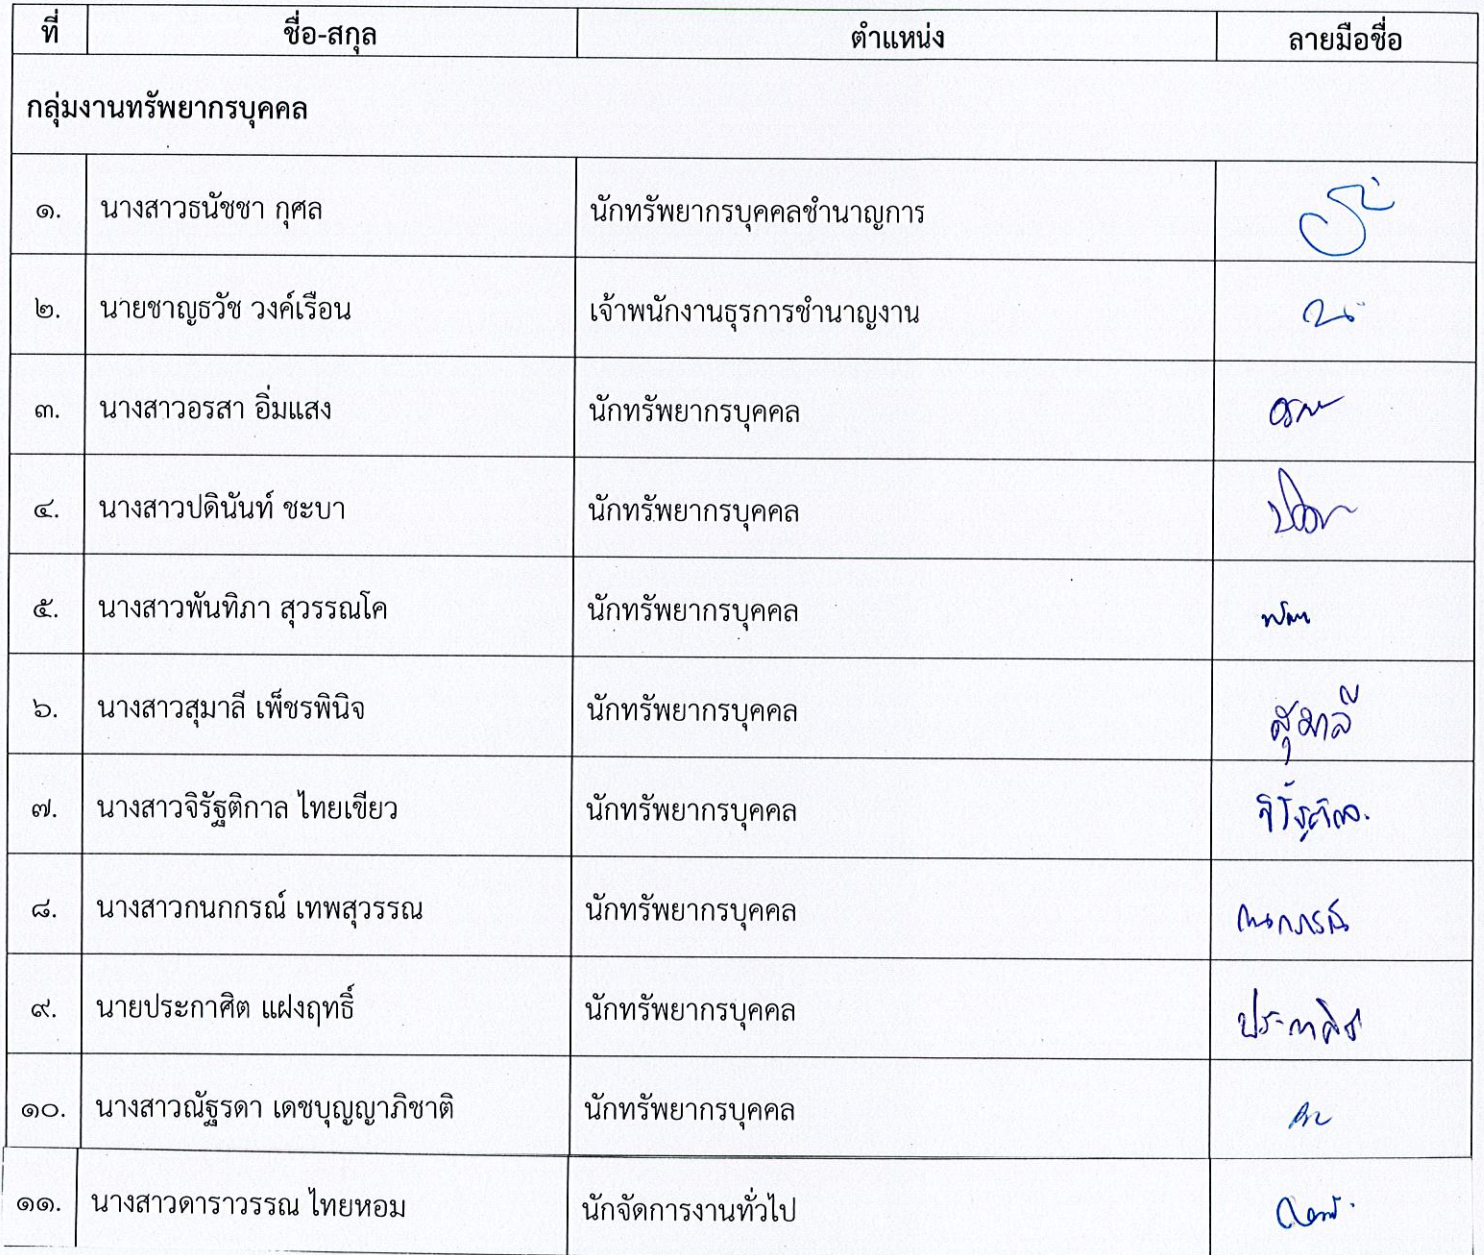 ที่ ชื่อ-สกุล ตำแหน่ง ลายมือชื่อ
กลุ่มงานทรัพยากรบุคคล
๑. นางสาวธนัชชา กุศล นักทรัพยากรบุคคลชำนาญการ
๒. นายชาญธวัช วงค์เรือน เจ้าพนักงานธุรการชำนาญงาน
๓. นางสาวอรสา อิ่มแสง นักทรัพยากรบุคคล
๔. นางสาวปดินันท์ ชะบา นักทรัพยากรบุคคล
๕. นางสาวพันทิภา สุวรรณโค นักทรัพยากรบุคคล
๖. นางสาวสุมาลี เพ็ชรพินิจ นักทรัพยากรบุคคล สุมาลี
๗. นางสาวจิรัฐติกาล ไทยเขียว นักทรัพยากรบุคคล จิรัฐติกาล
๘. นางสาวกนกกรณ์ เทพสุวรรณ นักทรัพยากรบุคคล กนกกรณ์
๙. นายประกาศิต แฝงฤทธิ์ นักทรัพยากรบุคคล ประกาศิต
๑๐. นางสาวณัฐรดา เดชบุญญาภิชาติ นักทรัพยากรบุคคล
๑๑. นางสาวดาราวรรณ ไทยหอม นักจัดการงานทั่วไป